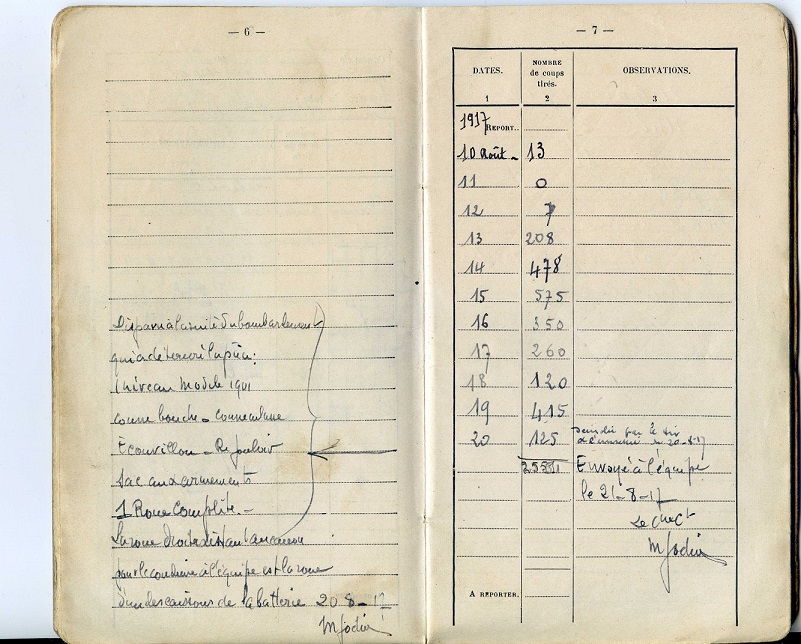 — 6 —
Disparu à la suite du bombardement
qui a détérioré la pièce :
1 niveau modèle 1901
couvre bouche - couvre culasse
Ecouvillon - Refouloir
Sac aux armements
1 Roue Complète -
La roue droite au canon
pour le conduire à l'équipe est la roue
d'un des caissons de la batterie 20-8-17
M Jodin
— 7 —
DATES. NOMBRE de coups tirés. OBSERVATIONS.
1 2 3
1917 REPORT..
10 Août - 13
11 0
12 7
13 208
14 478
15 575
16 350
17 260
18 120
19 415
20 125 par le tir
de l'ennemi 20-8-17
2551 Envoyé à l'équipe
le 21-8-17
Le chef
M Jodin
A REPORTER.